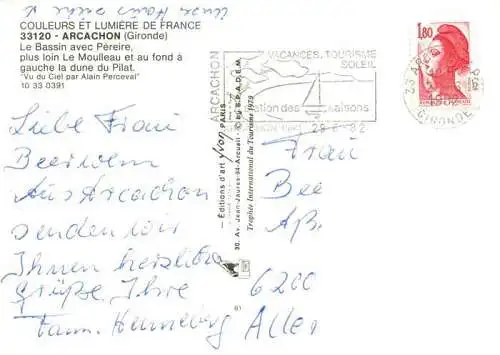 COULEURS ET LUMIÈRE DE FRANCE
33120 - ARCACHON (Gironde)
Le Bassin avec Péreire,
plus loin Le Moulleau et au fond à
gauche la dune du Pilat.
"Vu du Ciel par Alain Perceval"
10 33 0391
Liebe Frau
Aus Arcachon
senden wir
Ihnen herzliche
Grüße Ihre
Fam. Henneberg
ARCACHON
VACANCES. TOURISME
SOLEIL
station des saisons
1,80
33 ARC
GIRONDE
— Éditions d'art yvon PARIS
30, Av. Jean-Jaures-94-Arcueil
S.P.A.D.E.M.
Trophée International du Tourisme 1979
Frau
Bee
6200